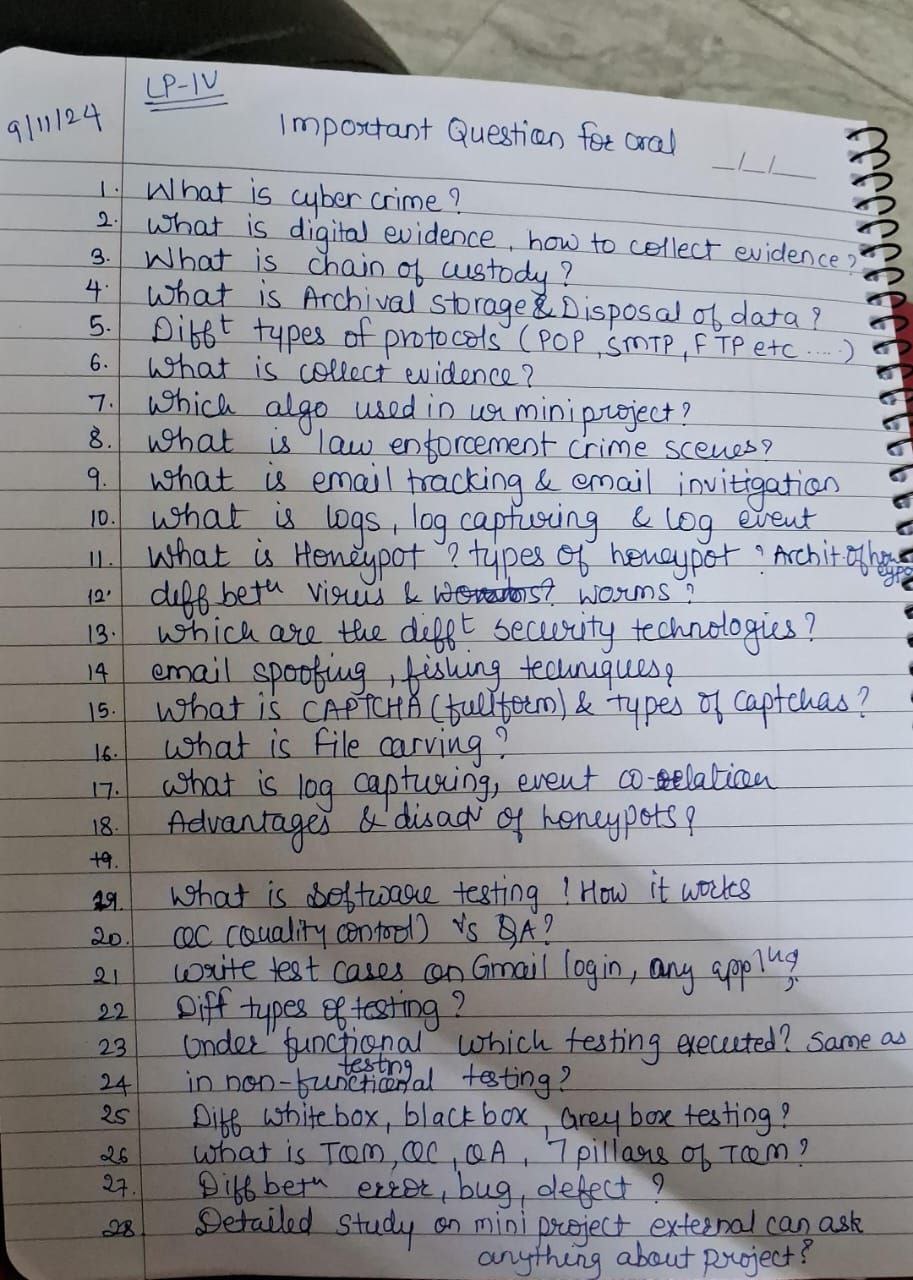 LP-IV
9/11/24
Important Question for oral
_/_/__
1. What is cyber crime?
2. What is digital evidence, how to collect evidence?
3. What is chain of custody?
4. What is Archival Storage & Disposal of data?
5. Difft types of protocols (POP, SMTP, FTP etc ....)
6. What is collect evidence?
7. Which algo used in ur mini project?
8. What is law enforcement crime scenes?
9. What is email tracking & email invitigation
10. What is logs, log capturing & log event
11. What is Honeypot? types of honeypot? Archit. of honeypo
12. diff betn virus & worms?
13. Which are the difft security technologies?
14 email spoofing, fishing techniques?
15. What is CAPTCHA (fullform) & types of captchas?
16. What is file carving?
17. What is log capturing, event co-relation
18. Advantages & disadv of honeypots?
19.
19. What is software testing! How it works
20. QC (Quality control) vs QA?
21 Write test cases on Gmail login, any app
22 Diff types of testing?
23 Under functional testing which testing executed? Same as
24 in non-functional testing?
25 Diff whitebox, blackbox, Greybox testing?
26 What is TQM, QC, QA, 7 pillars of TQM?
27. Diff betn error, bug, defect?
28 Detailed study on mini project external can ask
anything about project?